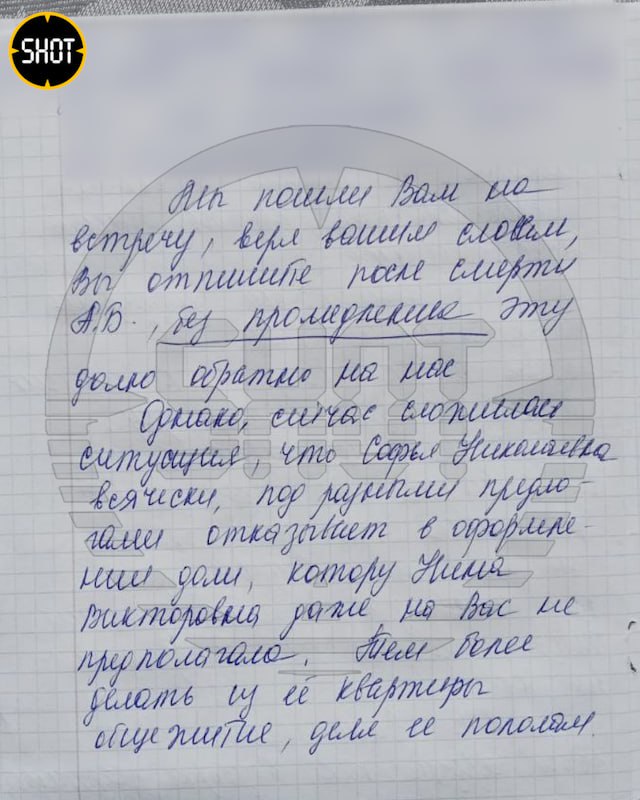 SHOT
Мы пошли Вам на
встречу, веря вашим словам,
Вы отпишите после смерти
А.Б., без промедления эту
долю обратно на нас
Однако, сейчас сложилась
ситуация, что Софья Николаевна
всячески, под разными предло-
гами отказывает в оформле-
нии доли, котору Нина
Викторовна даже на Вас не
предполагала. Тем более
делать из её квартиры
общежитие, деля её пополам.
SHOT